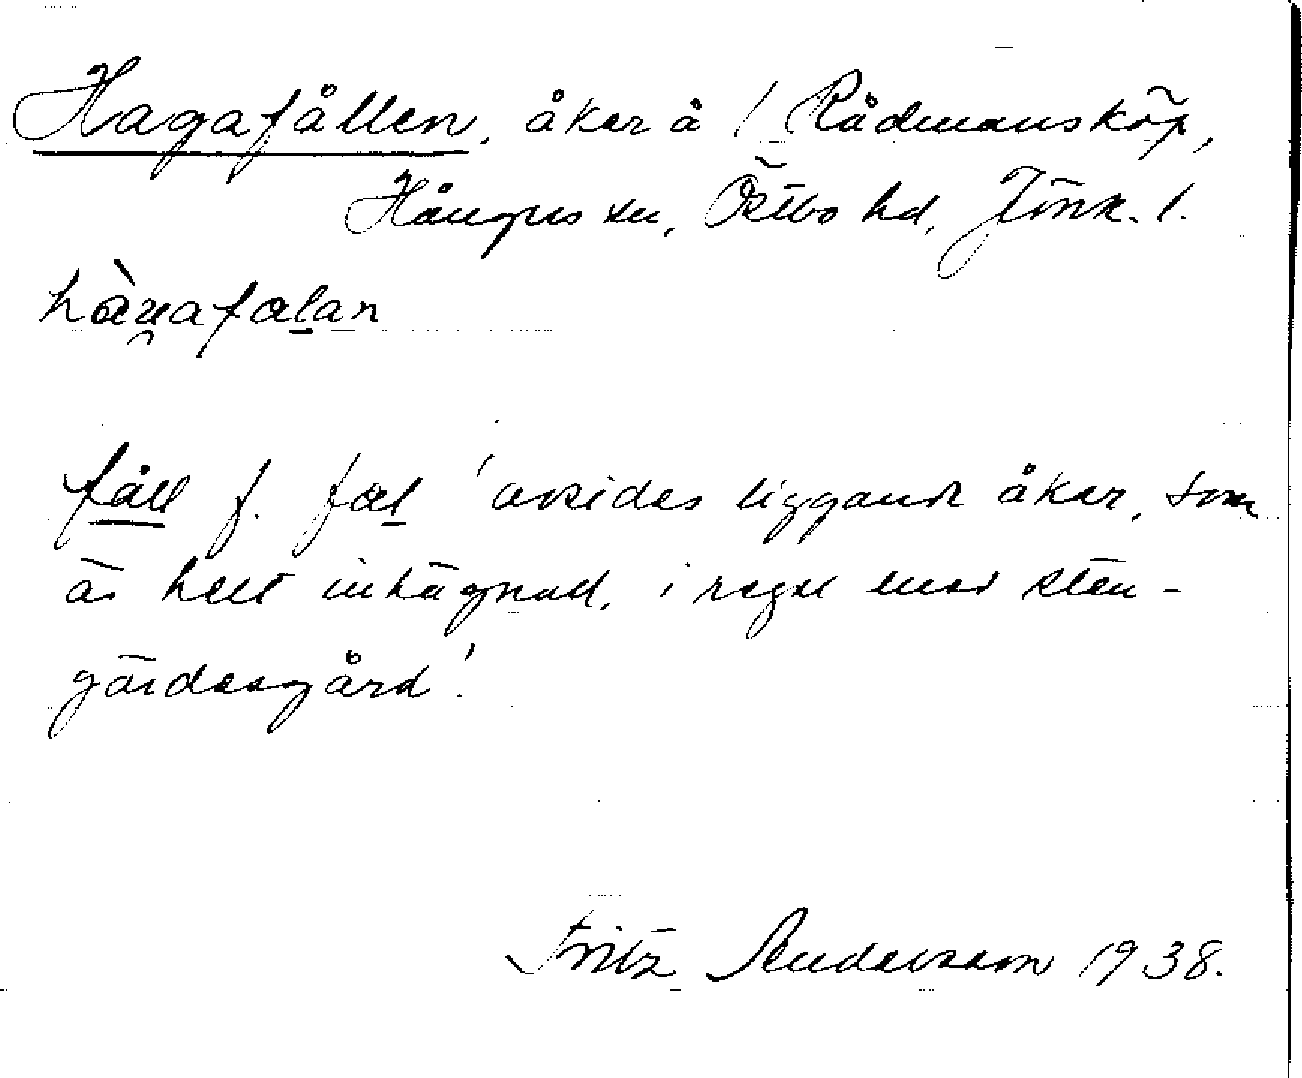 Hagafållen, åker å / Rådmansköp,
Hångers sn, Östbo hd, Jönk. l.
hàgafalan
fåll f. fal 'avsides liggande åker, som
är helt inhägnad, i regel med sten-
gärdesgård'.
Fritz Andersson 1938.